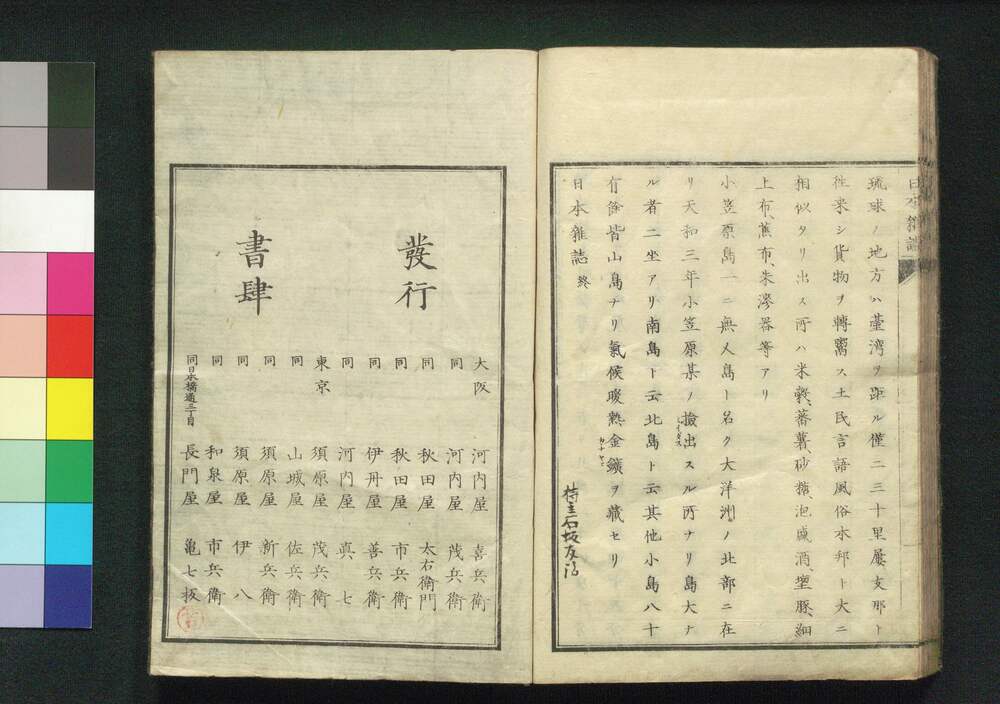 日本雜誌
琉球ノ地方ハ臺湾ヲ距ル僅ニ三十里屢支那ト
徃来シ貨物ヲ轉鬻ス土民言語風俗本邦ト大ニ
相似タリ出ス所ハ米穀、蕃薯、砂糖、泡盛酒、塩豚、細
上布、蕉布、朱漆器等アリ
小笠原島一ニ無人島ト名ク大洋洲ノ北部ニ在
リ天和三年小笠原某ノ撿出スル所ナリ島大ナ
ル者二坐アリ南島ト云北島ト云其他小島八十
有餘皆山島ナリ氣候暖熱金鑛ヲ藏セリ
日本雜誌 終
持主石坂友治
發行
書肆
大阪 河内屋 喜兵衛
同 河内屋 茂兵衛
同 秋田屋 太右衛門
同 秋田屋 市兵衛
同 伊丹屋 善兵衛
同 河内屋 真七
東京 須原屋 茂兵衛
同 山城屋 佐兵衛
同 須原屋 新兵衛
同 須原屋 伊八
同 和泉屋 市兵衛
同日本橋通三丁目 長門屋 亀七板